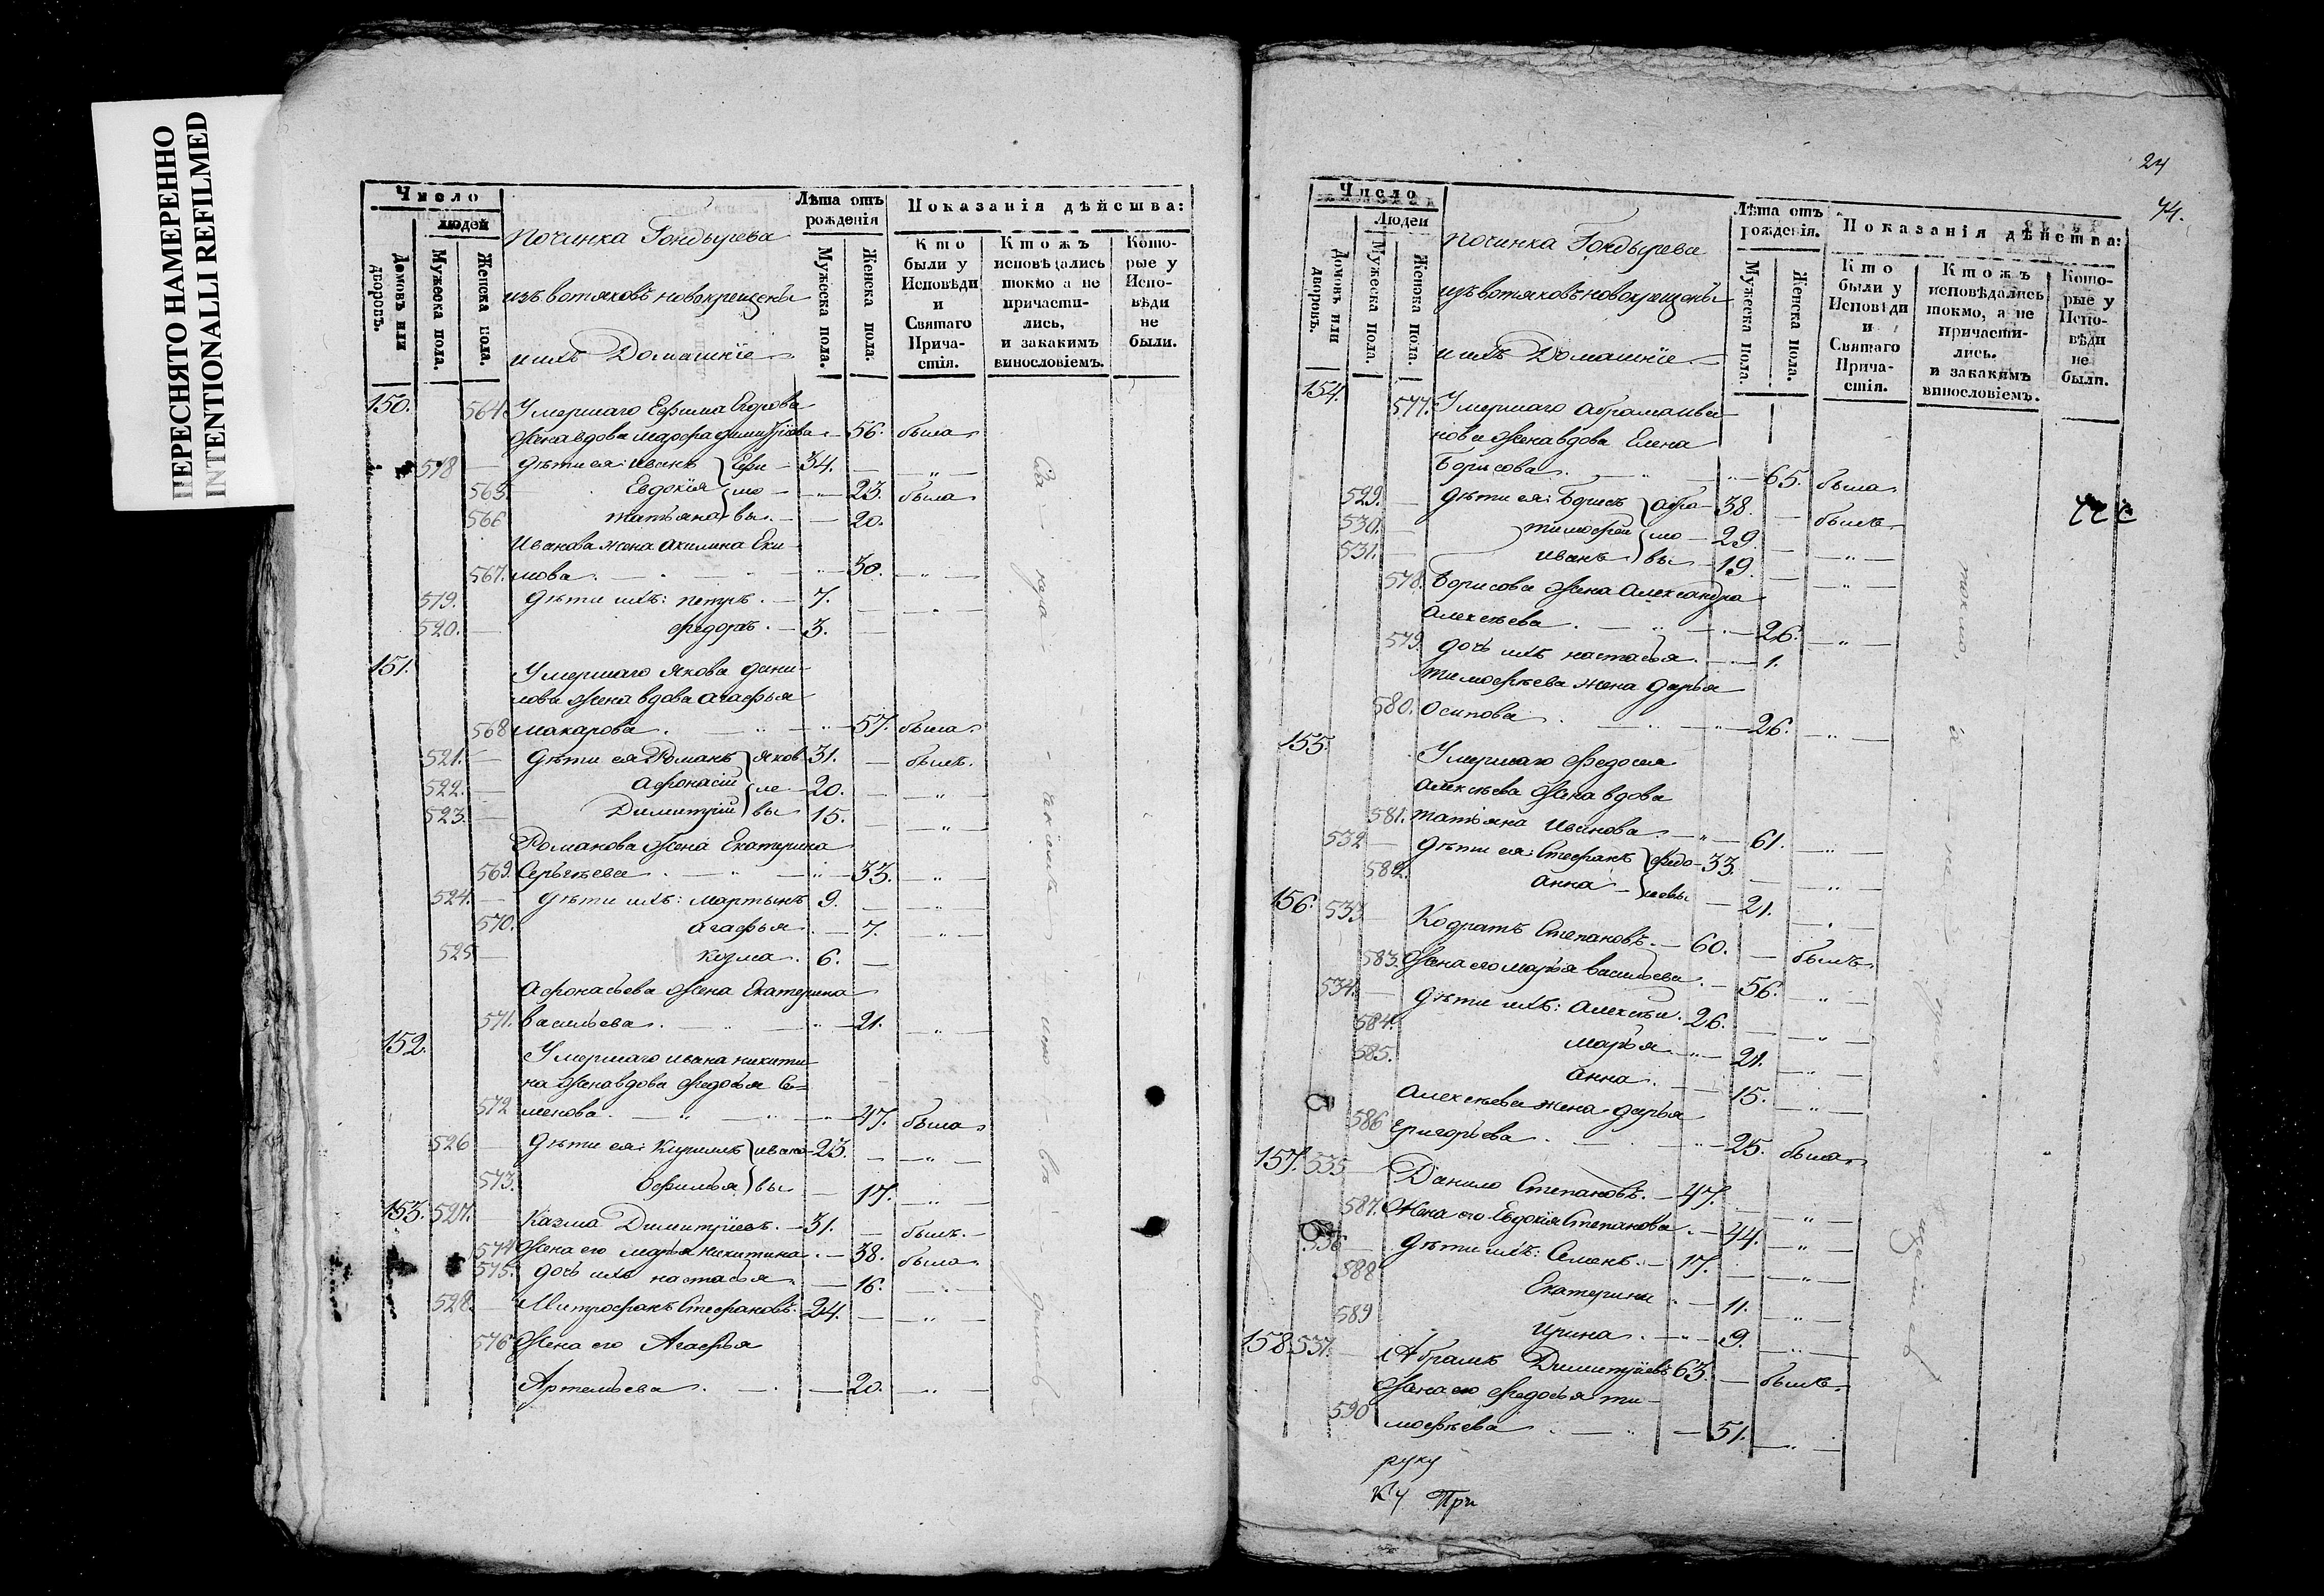 ПЕРЕСНЯТО НАМЕРЕННО
INTENTIONALLI REFILMED
Число
людей
Домовъ или дворовъ.
Мужеска пола.
Женска пола.
Починка Гондырева
изъ вотяковъ новокрещены
и ихъ Домашнїе
Лѣта отъ рожденія
Мужеска пола.
Женска пола.
Показанія дѣйства:
Кто были у Исповѣди и Святаго Прича-стія.
Ктожъ исповѣдались токмо а не причасти-лись, и закакимъ винословіемъ.
Кото-рые у Испо-вѣди не были.
150. 564. Умершаго Ефима Егорова
жена вдова марфа димитрїева 56. была
518 дѣти ея: иванъ Ефи 34. "
565. Евдокїя мо 23. была
566 татьяна вы. 20.
Иванова жена акилина Еки
567. мова. 30. "
519. дѣти ихъ: петръ. 7. "
520. федоръ. 3.
151. Умершаго якова дани
лова жена вдова агафья
568 макарова. 57. была
521. дѣти ея Романъ яков 31. былъ.
522. афонасїй ле 20. "
523. Димитрїй вы 15. "
Романова жена Екатерина
569. Сергѣева. 33. "
524. дѣти ихъ: мартынъ 9. "
570. агафья. 7. "
525 козма. 6.
афонасьева жена Екатерина
571. васильева. 21. "
152. Умершаго ивана никити
на жена вдова федосья Се=
572 менова. 47. была
526 дѣти ея: Кирилъ ивано 23. "
573. Офимья вы 17. "
153. 527. Казма Димитрїевъ. 31. былъ.
574 жена его марья никитина. 38. была
575. дочь ихъ настасья 16. "
528. Митрофанъ Стефановъ. 24. "
576 жена его Агафья
Артемьева. 20. "
24
74.
Число
Людей
Домовъ или дворовъ.
Мужеска пола.
Женска пола.
починка Гондырева
изъ вотяковъ новокрещены
и ихъ Домашнїе
Лѣта отъ рожденія.
Мужеска пола.
Женска пола.
Показанія дѣйства:
Кто были у Исповѣди и Святаго Прича-стія.
Ктожъ исповѣдались токмо, а не причасти-лись. и закакимъ винословіемъ.
Кото-рые у Испо-вѣди не были.
154. 577. Умершаго абрама ива
нова жена вдова Елена
Борисова. 65. была
529. дѣти ея: Борисъ абра 38. былъ
530. тимофей мо 29. "
531. иванъ вы 19. "
578. Борисова жена александра
алексѣева. 26. "
579. дочь ихъ настасья. 1.
тимофѣева жена дарья
580. осипова 26. "
155. Умершаго федосѣя
алексѣева жена вдова
581. татьяна иванова. 61. "
532 дѣти ея: Стефанъ федо 33. "
582. анна сеевы 21. "
156. 533 Кодратъ Степановъ. 60. былъ
583. жена его марья васильева. 56. "
534. дѣти ихъ: алексѣй. 26. "
584. марья 21. "
585. анна. 15. "
алексѣева жена дарья
586 григорьева. 25. была
157. 535 Данило Степановъ. 47. "
587. жена его Евдокїя Степанова. 44. "
536 дѣти ихъ: Семенъ. 17. "
588 Екатерина 11. "
589 ирина. 9. "
158. 537. Абрамъ Димитрїевъ 63. былъ
жена его федосья ти
590 мофѣева 51. "
руку
ку При